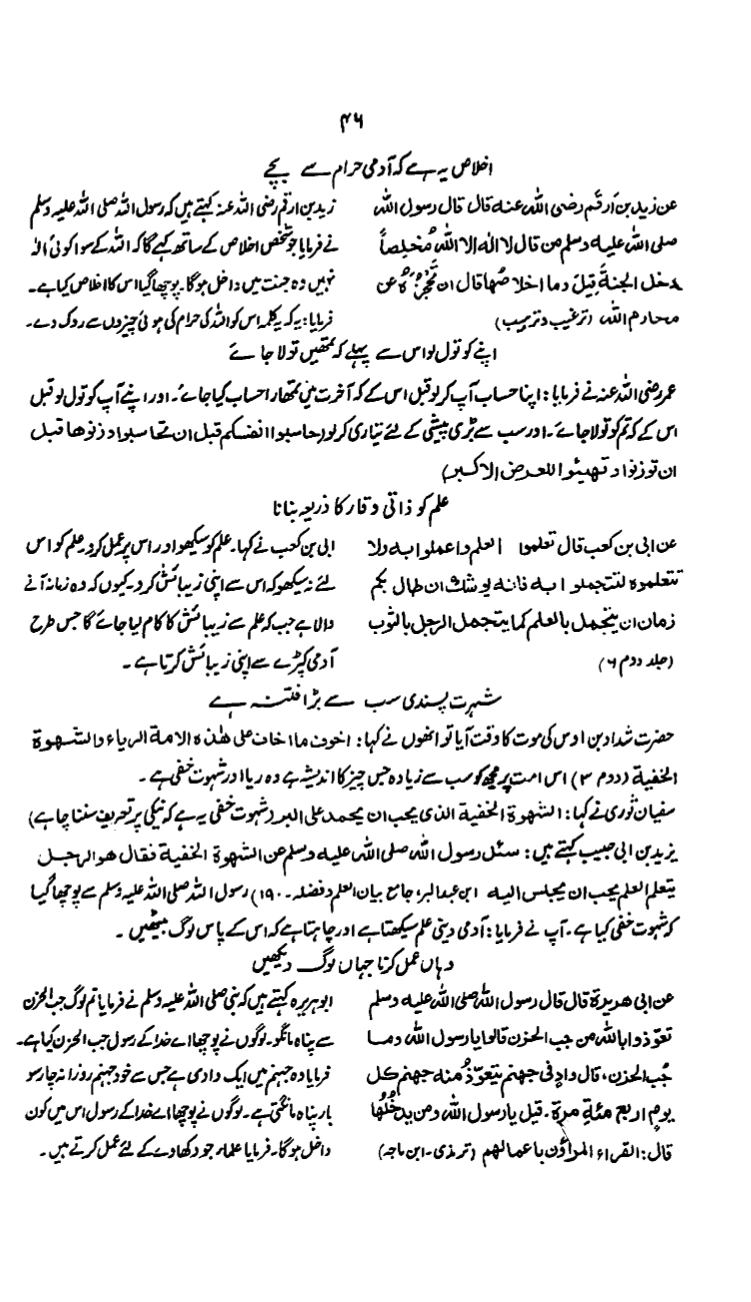 ۴۶
اخلاص یہ ہے کہ آدمی حرام سے بچے
عن زید بن اَرقم رضی اللہ عنہ قال قال رسول اللہ
صلی اللہ علیہ وسلم من قال لا الٰہ الا اللہ مُخلِصاً
دخل الجنةَ قِیلَ وما اخلاصُها قال ان تَحْجُزَہٗ عن
محارم اللہ (ترغیب وترہیب)
زید بن ارقم رضی اللہ عنہ کہتے ہیں کہ رسول اللہ صلی اللہ علیہ وسلم
نے فرمایا جو شخص اخلاص کے ساتھ کہے گا کہ اللہ کے سوا کوئی الٰہ
نہیں وہ جنت میں داخل ہوگا۔ پوچھا گیا اس کا اخلاص کیا ہے۔
فرمایا: یہ کہ یہ کلمہ اس کو اللہ کی حرام کی ہوئی چیزوں سے روک دے۔
اپنے کو تول لو اس سے پہلے کہ تمھیں تولا جائے
عمر رضی اللہ عنہ نے فرمایا: اپنا حساب آپ کر لو قبل اس کے کہ آخرت میں تمھارا حساب کیا جائے۔ اور اپنے آپ کو تول لو قبل
اس کے کہ تم کو تولا جائے۔ اور سب سے بڑی پیشی کے لئے تیاری کر لو (حاسبوا انفسکم قبل ان تحاسبوا وزنوها قبل
ان توزنوا وتهیئوا للعرض الاکبر)
علم کو ذاتی وقار کا ذریعہ بنانا
عن ابی بن کعب قال تعلموا العلم واعملوا بہ ولا
تتعلموہ لتتجملوا بہ فانہ یوشک ان طال بکم
زمان ان یتجمل بالعلم کما یتجمل الرجل بالثوب
(جلد دوم ۶)
ابی بن کعب نے کہا۔ علم کو سیکھو اور اس پر عمل کرو۔ علم کو اس
لئے نہ سیکھو کہ اس سے اپنی زیبائش کرو۔ کیوں کہ وہ زمانہ آنے
والا ہے جب کہ علم سے زیبائش کا کام لیا جائے گا جس طرح
آدمی کپڑے سے اپنی زیبائش کرتا ہے۔
شہرت پسندی سب سے بڑا فتنہ ہے
حضرت شداد بن اوس کی موت کا وقت آیا تو انھوں نے کہا: اخوف ما اخاف علی هٰذہ الامة الریاء والشهوة
الخفیة (دوم ۳) اس امت پر مجھ کو سب سے زیادہ جس چیز کا اندیشہ ہے وہ ریا اور شہوت خفی ہے۔
سفیان ثوری نے کہا: الشهوة الخفیة الذی یحب ان یحمد علی البر (شہوت خفی یہ ہے کہ نیکی پر تعریف سننا چاہے)
یزید بن ابی حبیب کہتے ہیں: سئل رسول اللہ صلی اللہ علیہ وسلم عن الشهوة الخفیة فقال هو الرجل
یتعلم العلم یحب ان یجلس الیہ ابن عبدالبر، جامع بیان العلم وفضلہ۔ ۱۹۰) رسول اللہ صلی اللہ علیہ وسلم سے پوچھا گیا
کہ شہوت خفی کیا ہے۔ آپ نے فرمایا: آدمی دینی علم سیکھتا ہے اور چاہتا ہے کہ اس کے پاس لوگ بیٹھیں۔
وہاں عمل کرنا جہاں لوگ دیکھیں
عن ابی هریرة قال قال رسول اللہ صلی اللہ علیہ وسلم
تعوّذوا باللہ من جب الحزن قالوا یا رسول اللہ وما
جُب الحزن، قال وادٍ فی جهنم یتعوّذُ منہ جهنم کل
یومٍ اربع مئةِ مرة۔ قیل یا رسول اللہ ومن یدخُلُها
قال: القراء المراؤن باعمالهم (ترمذی۔ ابن ماجہ)
ابو ہریرہ کہتے ہیں کہ نبی صلی اللہ علیہ وسلم نے فرمایا تم لوگ جب الحزن
سے پناہ مانگو۔ لوگوں نے پوچھا اے خدا کے رسول جب الحزن کیا ہے۔
فرمایا وہ جہنم میں ایک وادی ہے جس سے خود جہنم روزانہ چار سو
بار پناہ مانگتی ہے۔ لوگوں نے پوچھا اے خدا کے رسول اس میں کون
داخل ہوگا۔ فرمایا علماء جو دکھاوے کے لئے عمل کرتے ہیں۔